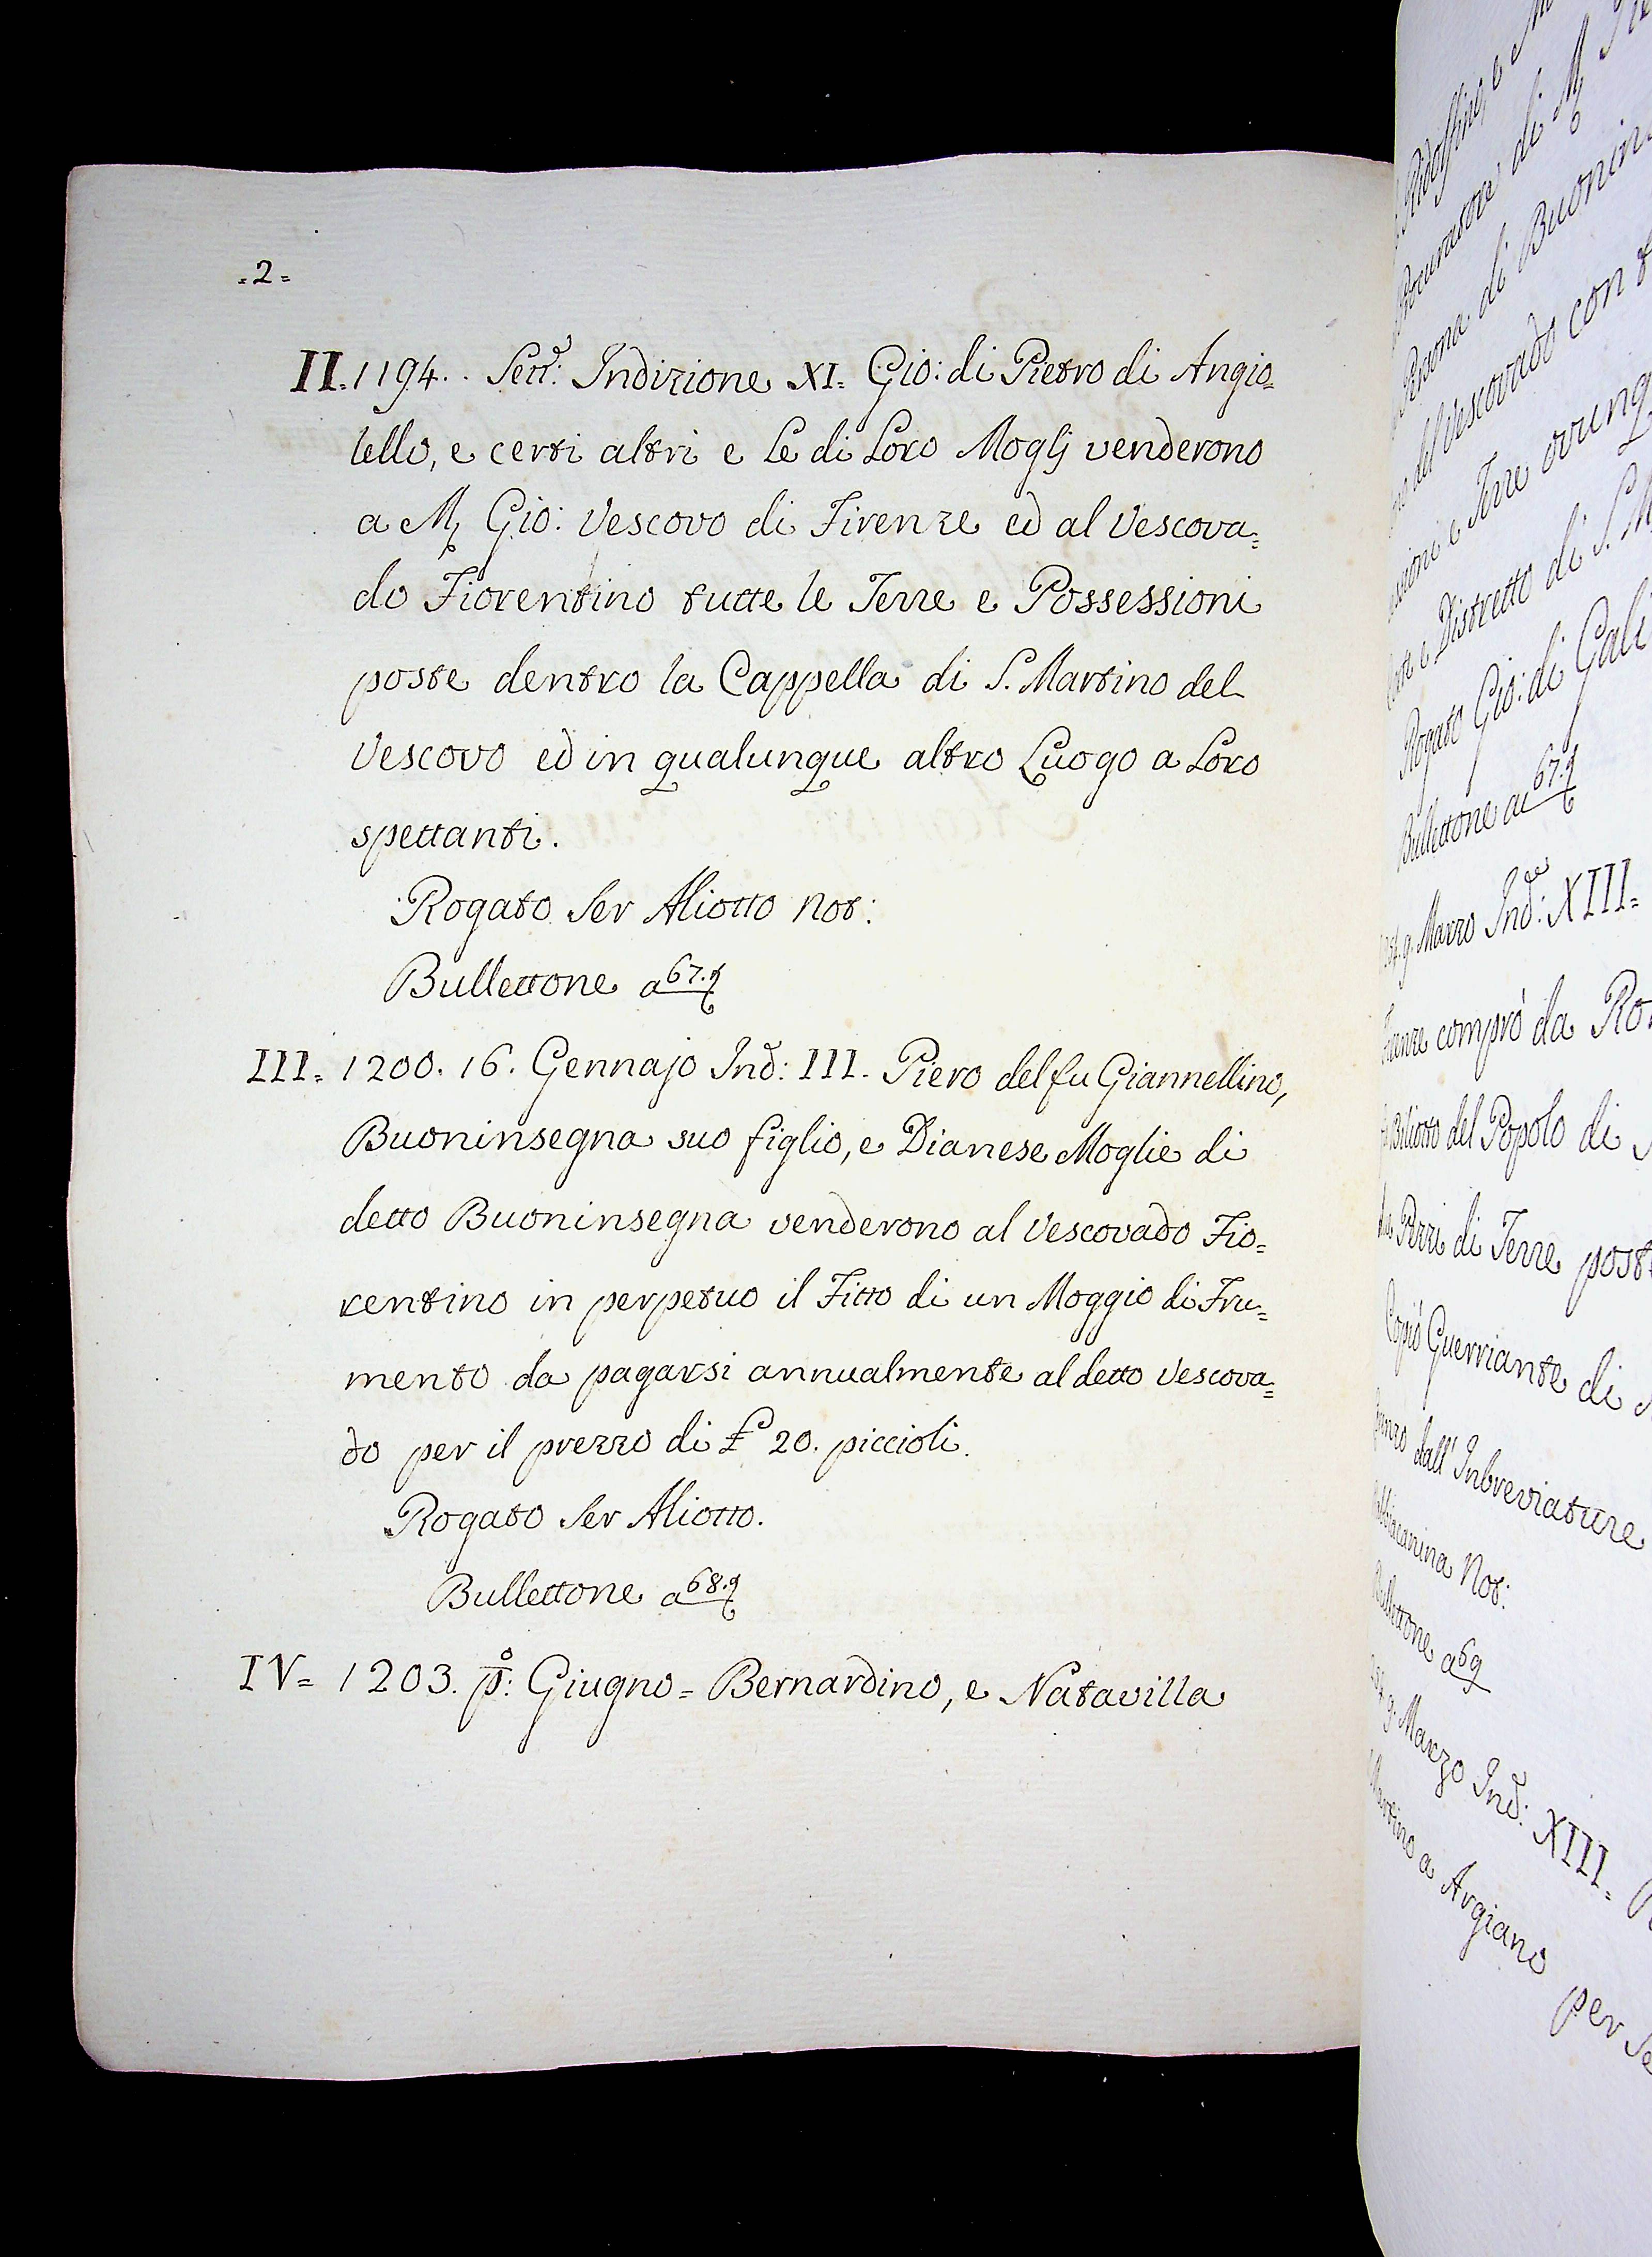 =2=
II. 1194.. Sett.e: Indizione XI= Gio: di Pietro di Angio=
lello, e certi altri e Le di Loro Moglj venderono
a M. Gio: Vescovo di Firenze ed al Vescova=
do Fiorentino tutte le Terre e Possessioni
poste dentro la Cappella di S. Martino del
Vescovo ed in qualunque altro Luogo a Loro
spettanti.
Rogato Ser Aliotto Not:
Bullettone a 67. q
III= 1200. 16. Gennajo Ind: III. Piero del fu Giannellino,
Buoninsegna suo figlio, e Dianese Moglie di
detto Buoninsegna venderono al Vescovado Fio=
rentino in perpetuo il Fitto di un Moggio di Fru=
mento da pagarsi annualmente al detto Vescova=
do per il prezzo di £ 20. piccioli.
Rogato Ser Aliotto.
Bullettone a 68. q
IV= 1203. p.o: Giugno= Bernardino, e Natavilla
Procuratore di M
di Buonin
del Vescovado con
e Terre ovunq
e Distretto di S. M
Rogato Gio: di Gali
Bullettone a 67. q
9. Marzo Ind: XIII=
comprò da Ro
del Popolo di
di Terre post
Copiò Guerriante di
dall'Inbreviature
Not:
Bullettone a 69
9. Marzo Ind: XIII=
a Argiano per Se